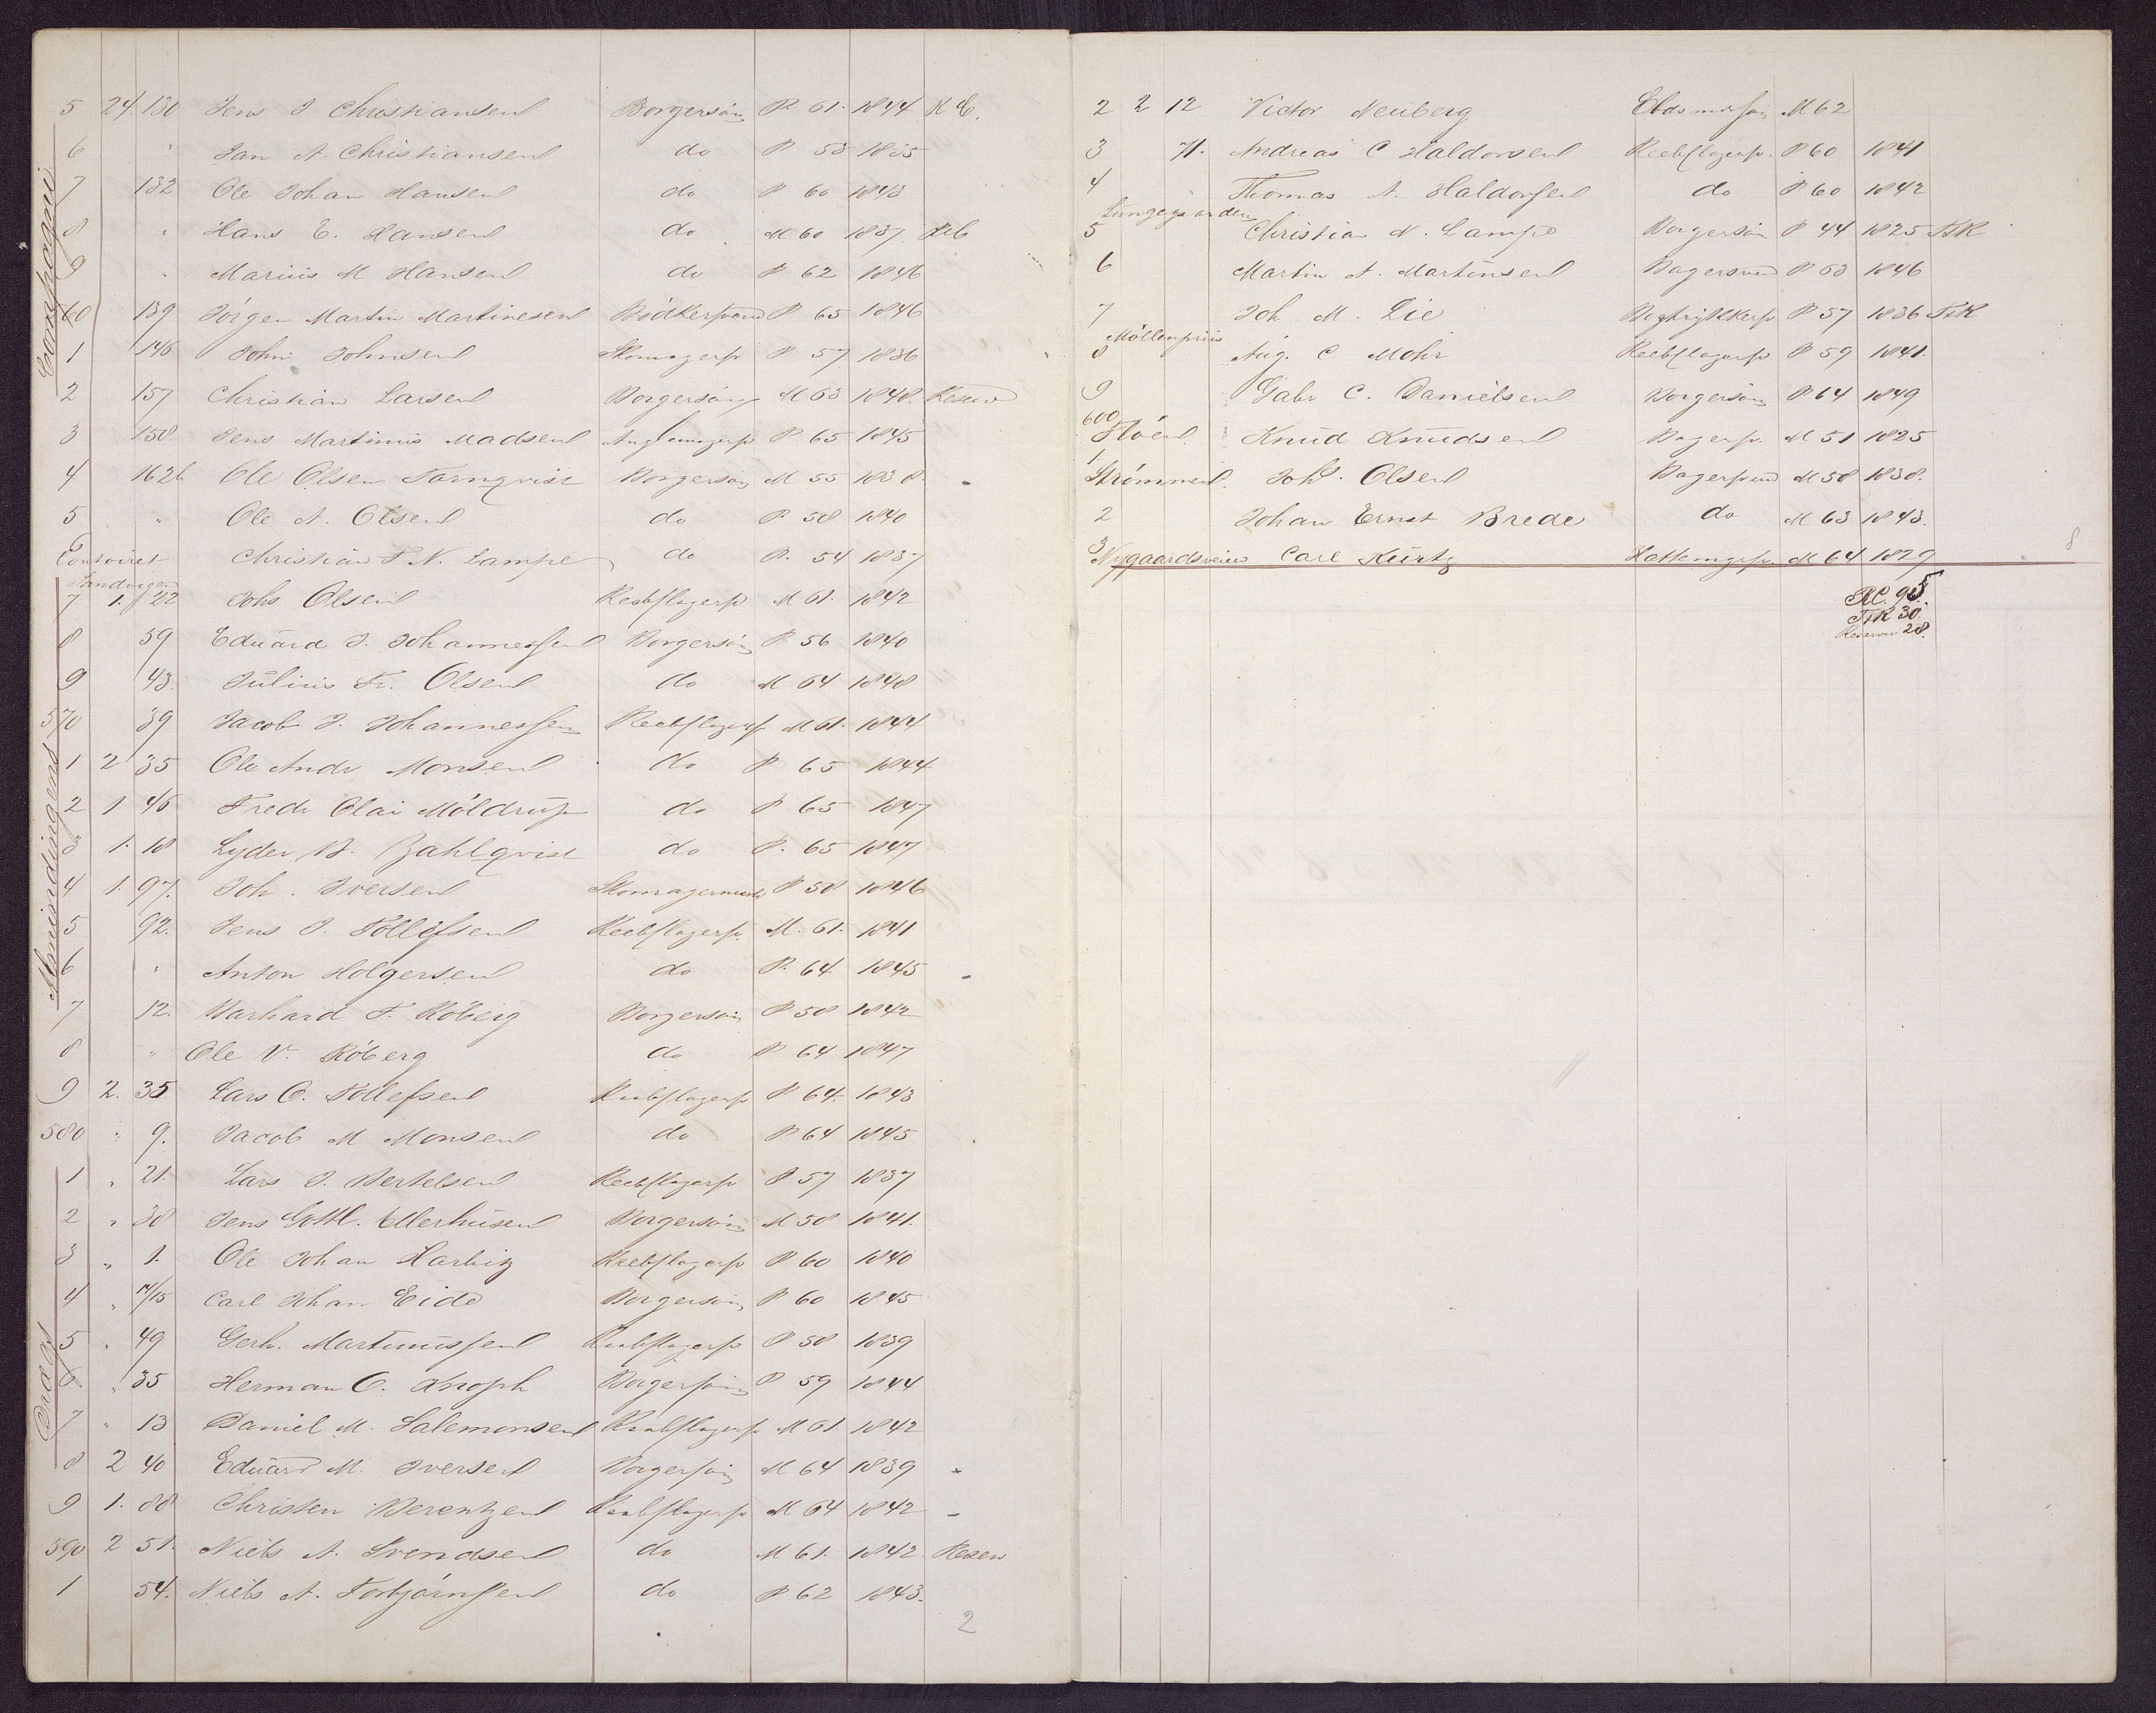 Compagnie
5 24. 130 Jens J Christiansen Borgersøn P. 61. 1844 K C.
6 " Jan A. Christiansen do P 53 1835
7 132 Ole Johan Hansen do P 60 1843
8 " Hans E. Hansen do M 60 1837
9 " Marius M Hansen do P 62 1846
60 139 Jörgen Martin Martinesen P 65 1846
1 146 John Johnsen Skomagers P 57 1836
2 157 Christian Larsen Borgersøn M 63 1848. Reserve
3 158. Jens Martinus Madsen P 65 1845
4 162b Ole Olsen Tarnqvist Borgersøn M 55 1838.
5 " Ole A. Olsen do P. 58 1840
Contoiret Christian F N. Lampe do P. 54 1837
Sandvigen
7 1. 22 Johs Olsen Reebslagers M 61. 1842
8 59 Eduard J. Johannessen Borgersøn P. 56 1840
9 43. Julius Fr. Olsen do M 64 1848
570 39 Jacob J. Johannessen Reebslagers M 61. 1844
Almindingens
1 2 35 Ole Andr Monsen do P 65 1844
2 1 46 Fredr Olai Möldrup do P. 65 1847
3 1. 18 Lyder B. Zahlqvist do P. 65 1847
4 1. 97. Joh. Iversen P 58 1846
5 92. Jens J. Tollefsen Reebslagers. M. 61. 1841
6 " Anton Holgersen do P. 64 1845
7 12. F. Röberg Borgersøn P 58 1842
8 " Ole V. Röberg do P 64 1847
9 2. 35 Lars O. Tollefsen Reebslagers P 64. 1843
580 " 9. Jacob M Monsen do P 64 1845
Drags
1 " 21. Lars J. Bertelsen Reebslagers P 57 1837
2 " 38 Jens Gottl. Ellerhusen Borgersøn M 58 1841.
3 " 1. Ole Johan Harbitz Reebslagers P 60 1840
4 " 14/15 Carl Johan Eide Borgersøn P 60 1845
5 " 49 Gerh. Martinussen Reebslagers P 58 1839
6 " 35 Herman C. Knoph Borgersøn P 59 1844
7 " 13 Daniel M. Salemonsen Reebslagers M 61 1842
8 2 40 Eduard M. Iversen Borgersøn M 64 1839
9 1. 88 Christen Berentzen Reebslagers M 64 1842
590 2 51. Niels A. Svendsen do M 61. 1842 Reserv
1 54. Niels A. Torbjörnsen do P 62 1843.
2
2 2 12 Victor Neuberg M 62
3 71. Andreas C Haldorsen Reebslagers. P 60 1841
4 " Thomas A. Haldorsen do P 60 1842
Lungegaarden
5 Christian N. Lampe Borgersøn P 44 1825 FrK
6 Martin A. Martinsen Bagersvend P 63 1846
7 Joh. M. Lie Bogtrykkers P 57 1836 FrK
Möllenpriis
8 Aug. C Mohr Reebslagers P 59 1841.
9 Gabr C. Danielsen Borgersøn P 64 1849
600
Flöen Knud Knudsen Bagers. M 51 1825
1.
Strömmen. Johs. Olsen Bagersvend M 58 1838.
2 Johan Ernst Brede do M 63 1843.
3
Nygaardsveien Carl Kurtz Hattemagers. M 64 1829
8
RC. 95.
FrK 30.
Reserver 28.